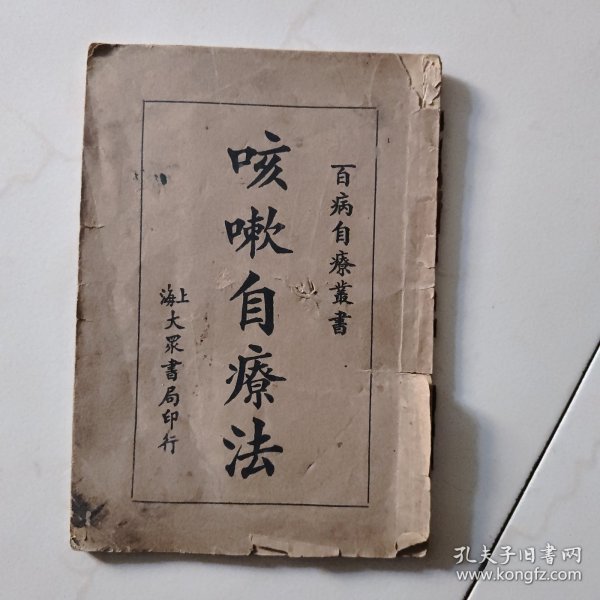 百病自療叢書
咳嗽自療法
上海大眾書局印行
孔夫子旧书网
www.kongfz.com